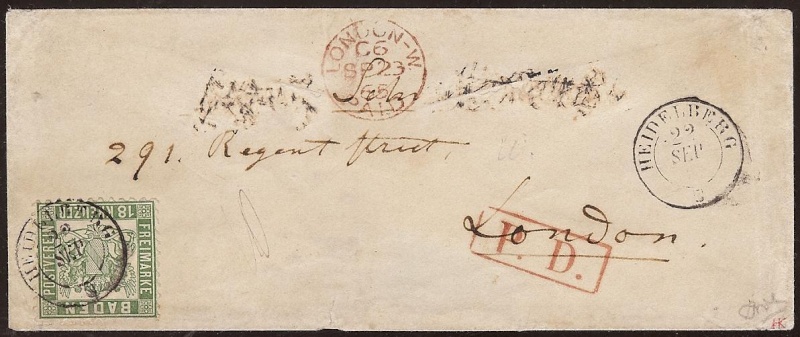 LONDON-W.
C6
SP 23
PAID
291. Regent Street,
London.
P. D.
HEIDELBERG
22
SEP
HEIDELBERG
SEP
BADEN
FREIMARKE
POSTVEREIN
18 KREUZER
HK